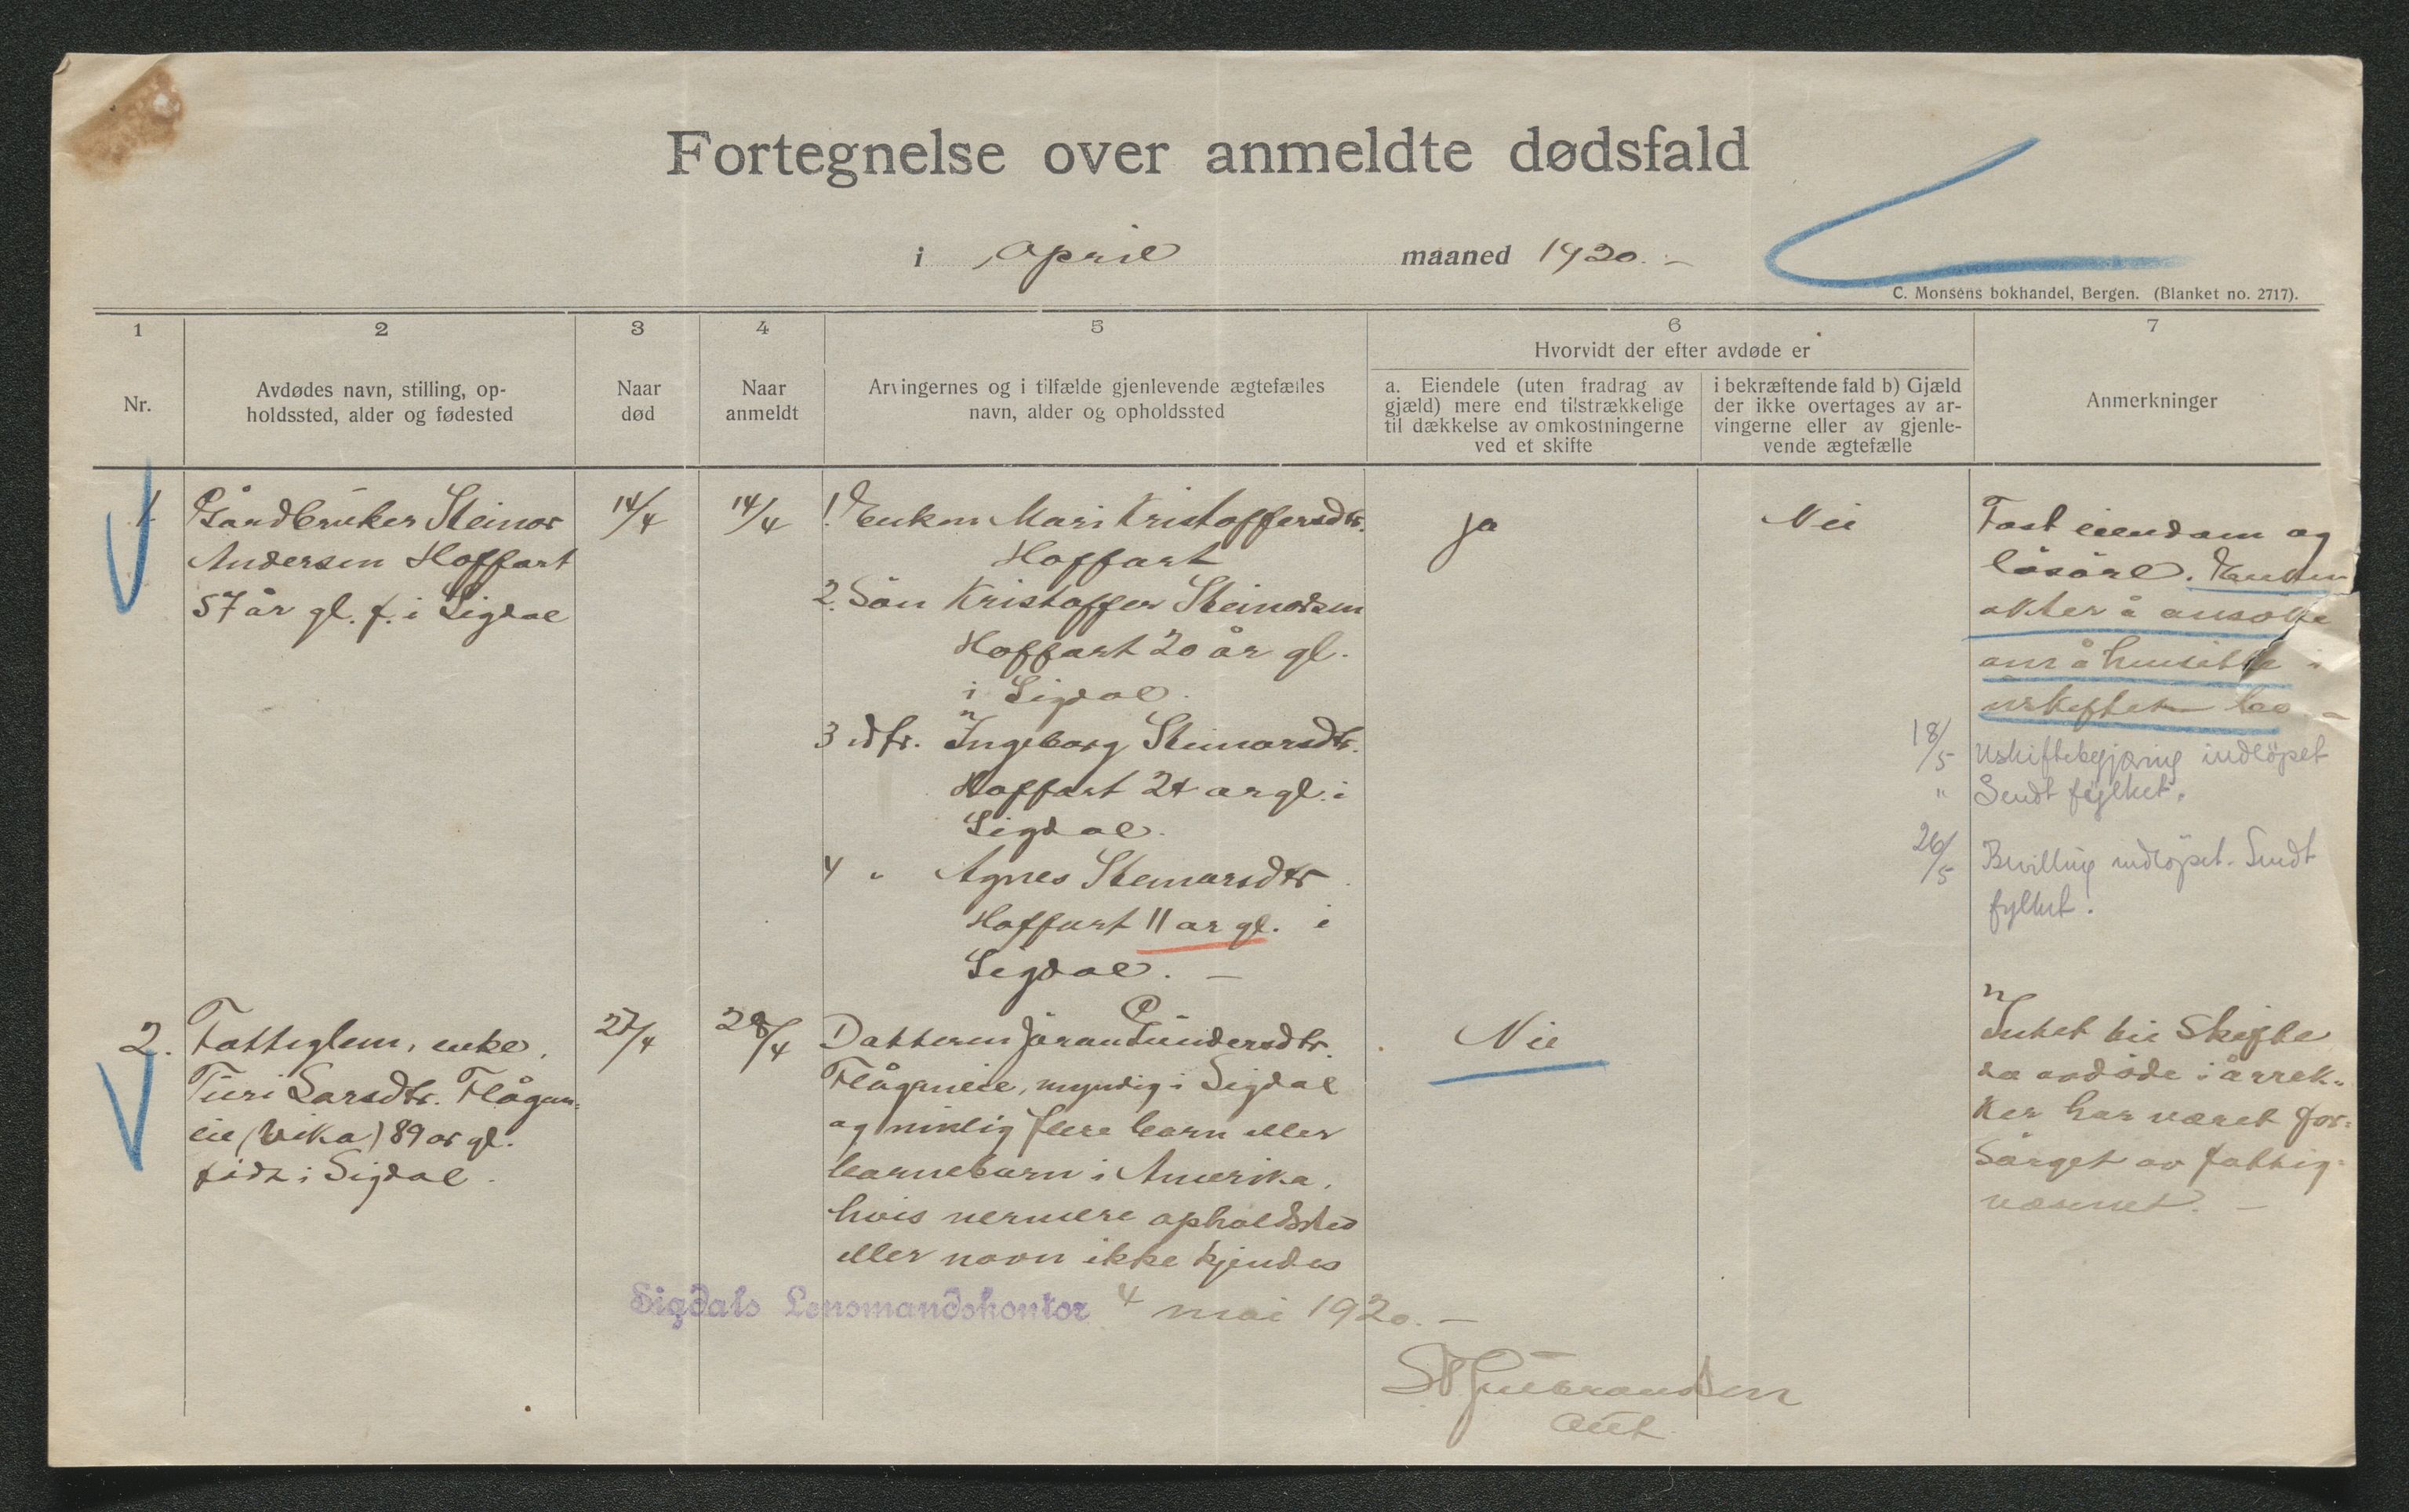 Fortegnelse over anmeldte dødsfald
i april maaned 1920.-
C. Monsens bokhandel, Bergen. (Blanket no. 2717).
1
2
3
4
5
6
7
Nr.
Avdødes navn, stilling, op-
holdssted, alder og fødested
Naar
død
Naar
anmeldt
Arvingernes og i tilfælde gjenlevende ægtefælles
navn, alder og opholdssted
Hvorvidt der efter avdøde er
a. Eiendele (uten fradrag av
gjæld) mere end tilstrækkelige
til dækkelse av omkostningerne
ved et skifte
i bekræftende fald b) Gjæld
der ikke overtages av ar-
vingerne eller av gjenle-
vende ægtefælle
Anmerkninger
1
Gårdbruker Steinar
Andersen Hoffart
57 år gl. f. i Sigdal
14/4
14/4
1. Enken Mari Kristoffersdtr.
Hoffart
2. Sön Kristoffer Steinarsen
Hoffart 20 år gl.
i Sigdal.
3 dtr. Ingeborg Steinarsdtr.
Hoffart 24 ar gl. i
Sigdal.
4 " Agnes Steinarsdtr
Hoffart 11 ar gl. i
Sigdal. -
ja
Nei
Fast eiendom og
lösöre. Enken
akter å ansöke
om å hensitte i
uskiftet bo -
18/5 Uskiftebegjæring indløpet
" Sendt fylket.
26/5 Bevilling indløpet. Sendt
fylket.
2.
Fattiglem, enke,
Turi Larsdtr. Flågan-
eie (Vika) 89 ar gl.
födt i Sigdal.
27/4
28/4
Datteren Jöran Gundersdtr.
Flåganeie, myndig i Sigdal
og muelig flere barn eller
barnebarn i Amerika,
hvis nermere opholdsted
eller navn ikke kjendes
Nei
Intet bii Skifte
da avdöde i årrek-
ker har været for-
sörget av fattig-
væsenet. -
Sigdals Lensmandskontor 4 mai 1920. -
Gulbrandsen